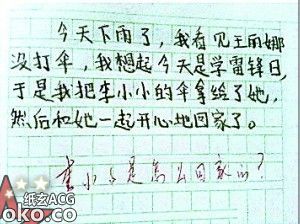 今天下雨了，我看见王丽娜
没打伞，我想起今天是学雷锋日，
于是我把李小小的伞拿给了她，
然后和她一起开心地回家了。
李小小是怎么回家的？
纸玄ACG
oko.co